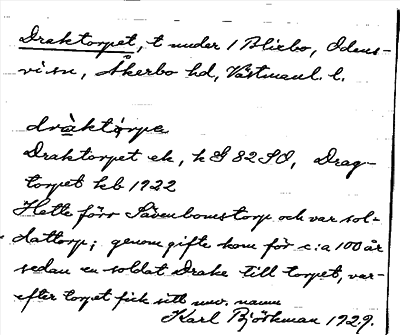 Draktorpet, t under 1 Bliebo, Odens-
vi sn, Åkerbo hd, Västmanl. l.
dràktårpe
Draktorpet ek, h G 82 SO, Drag-
torpet hb 1922
Hette förr Sävenbomstorp och var sol-
dattorp; genom gifte kom för c:a 100 år
sedan en soldat Drake till torpet, var-
efter torpet fick sitt nuv. namn
Karl Björkman 1929.